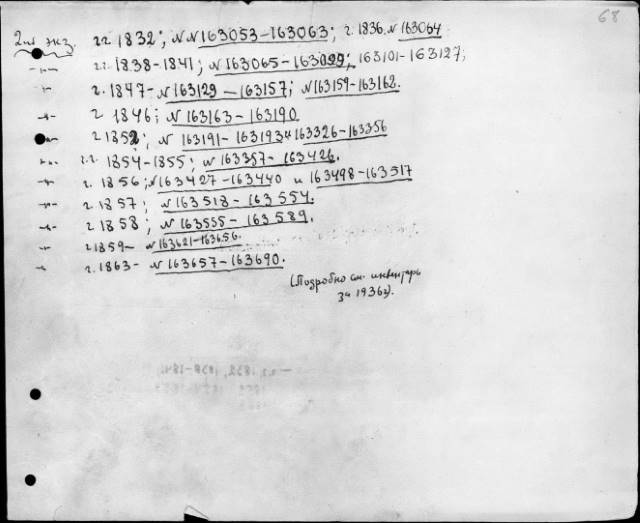 68
2ой экз. г.г. 1832; №№ 163053-163063; г. 1836. № 163064
-"- г.г. 1838-1841; № 163065-163099; 163101-163127;
-"- г. 1847-№ 163129-163157; № 163159-163162.
-"- г 1846; № 163163-163190
-"- г 1852; № 163191-163193 и 163326-163356
-"- г.г. 1854-1855; № 163357-163426.
-"- г. 1856; № 163427-163440 и 163498-163517
-"- г. 1857; № 163518-163554.
-"- г. 1858; № 163555-163589.
-"- г 1859- № 163621-163656.
-"- г. 1863- № 163657-163690.
(Подробно см. инвентарь
за 1936 г).